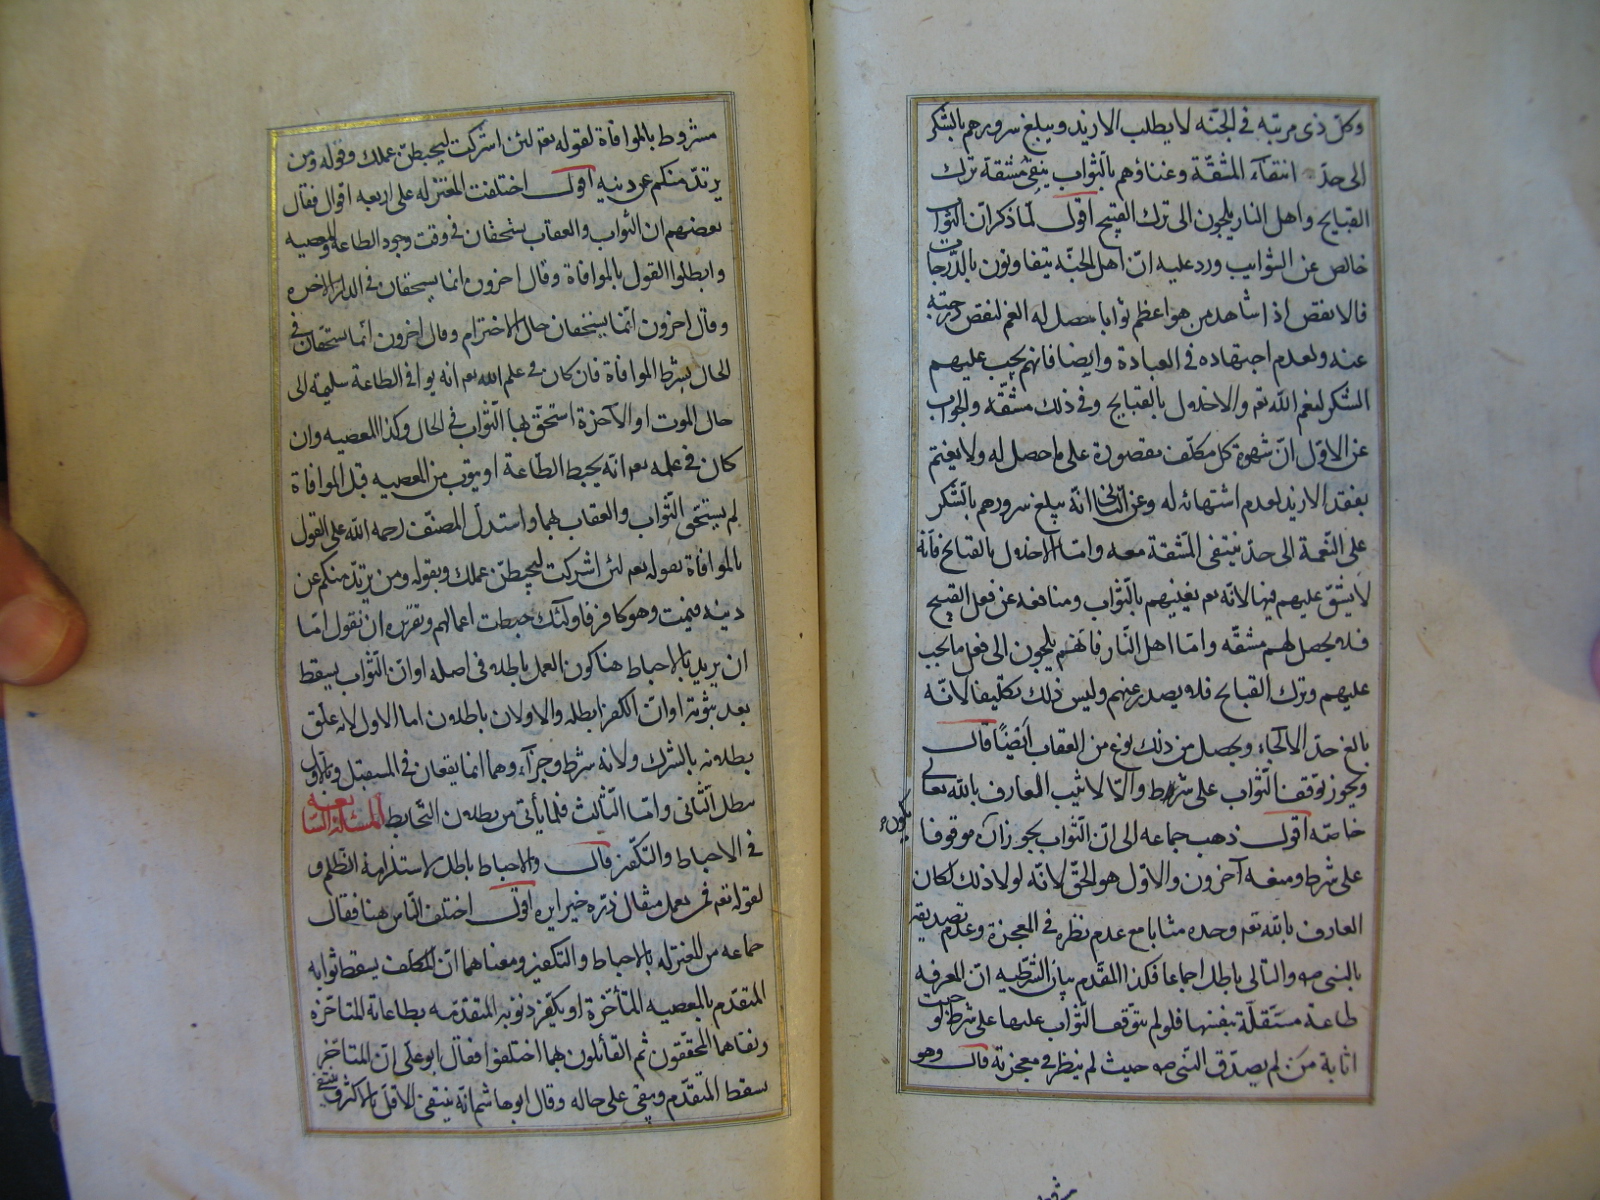 وكل ذى مرتبه في الجنّه لا يطلب الازيد ويبلغ سرورهم بالشكر
الى حدّ انتفآء المشقّة وغناؤهم بالثواب ينفى مشقة ترك
القبايح واهل النار يلجون الى ترك القبيح اقول لمّا ذكر انّ الثواب
خالص عن الشوايب ورد عليه انّ اهل الجنّه يتفاوتون بالدّرجات
فالانقص اذا شاهد من هو اعظم ثوابا حصل له الغم لنقص درجته
عنه ولعدم اجتهاده في العبادة وايضا فانهم يجب عليهم
الشكر لنعم الله تعم والاخلال بالقبايح وفى ذلك مشقّه والجواب
عن الاوّل انّ شهوة كل مكلّف مقصورة على ما حصل له ولا يغتم
بفقد الازيد لعدم اشتهائه له وعن الثانى انّه يبلغ سرورهم بالشّكر
على النّعمة الى حدّ ينتفى المشقة معه وامّا الاخلال بالقبايح فانّه
لا يشقّ عليهم فيها لانّه تعم يغنيهم بالثّواب ومنافعه عن فعل القبيح
فلا يحصل لهم مشقّه وامّا اهل النّار فانّهم يلجون الى فعل ما يجب
عليهم وترك القبايح فلا يصدر عنهم وليس ذلك تكليفا لانّه
بالغ حدّ الالجاء ويحصل من ذلك نوع من العقاب ايضًا قال
ويجوز توقف الثّواب على شرط والّا لاثيب المعارف بالله تعالى
خاصّه اقول ذهب جماعه الى انّ الثّواب يجوز ان موقوفا
يكون
على شرط ومنعه آخرون والاوّل هو الحقّ لانّه لولا ذلك لكان
العارف بالله تعم وحده مثابا مع عدم نظره في المعجزة وعدم تصديقه
بالنبى صه والتالى باطل اجماعا فكذا المقدّم بيان الشّرطيه انّ المعرفه
طاعة مستقلّة بنفسها فلو لم يتوقف الثّواب عليها على شرط لوجبت
اثابة من لم يصدّق النّبى صه حيث لم ينظر في معجزته قال وهو
مشروط بالموافاة لقوله تعم لئن اشركت ليحبطنّ عملك وقوله ومن
يرتدّ منكم عن دينه اقول اختلفت المعتزله على اربعه اقوال فقال
بعضهم ان الثّواب والعقاب يستحقان في وقت وجود الطاعة والمعصيه
وابطلوا القول بالموافاة وقال اخرون انما يستحقان في الدار الاخره
وقال اخرون انّما يستحقان حال الاخترام وقال اخرون انّما يستحقان في
الحال بشرط الموافاة فان كان في علم الله تعم انه يوافى الطاعة سليمة الى
حال الموت او الآخرة استحقّ بها الثّواب في الحال وكذا المعصيه وان
كان في علمه تعم انّه يحبط الطّاعة او يتوب من المعصيه قبل الموافاة
لم يستحق الثّواب والعقاب بهما واستدلّ المصنّف رحمه الله على القول
بالموافاة بقوله تعم لئن اشركت ليحبطنّ عملك وبقوله ومن يرتدّ منكم عن
دينه فيمت وهو كافر فاولئك حبطت اعمالهم وتقريره ان نقول امّا
ان يريد بالاحباط هنا كون العمل باطلا في اصله او انّ الثّواب يسقط
بعد ثبوته او انّ الكفر ابطله والاولان باطلان اما الاول لانه علق
بطلانه بالشرك ولانه شرط وجزآء وهما انما يقعان في المستقبل وبالاول
يبطل الثّانى وامّا الثّالث فلما يأتى من بطلان التّحابط المسئلة السّابعه
في الاحباط والتكفير قال والاحباط باطل لاستلزامه الظّلم و
لقوله تعم فمن يعمل مثقال ذرّة خيرا يره اقول اختلف النّاس هنا فقال
جماعه من المعتزله بالاحباط والتكفير ومعناهما انّ المكلف يسقط ثوابه
المتقدّم بالمعصيه المتأخّرة او يكفّر ذنوبه المتقدّمه بطاعاته المتاخّره
ونفاهما المحققون ثم القائلون بهما اختلفوا فقال ابو على انّ المتاخّر
يسقط المتقدّم ويبقى على حاله وقال ابو هاشم انّه ينتفى الاقلّ بالاكثر وينتفى